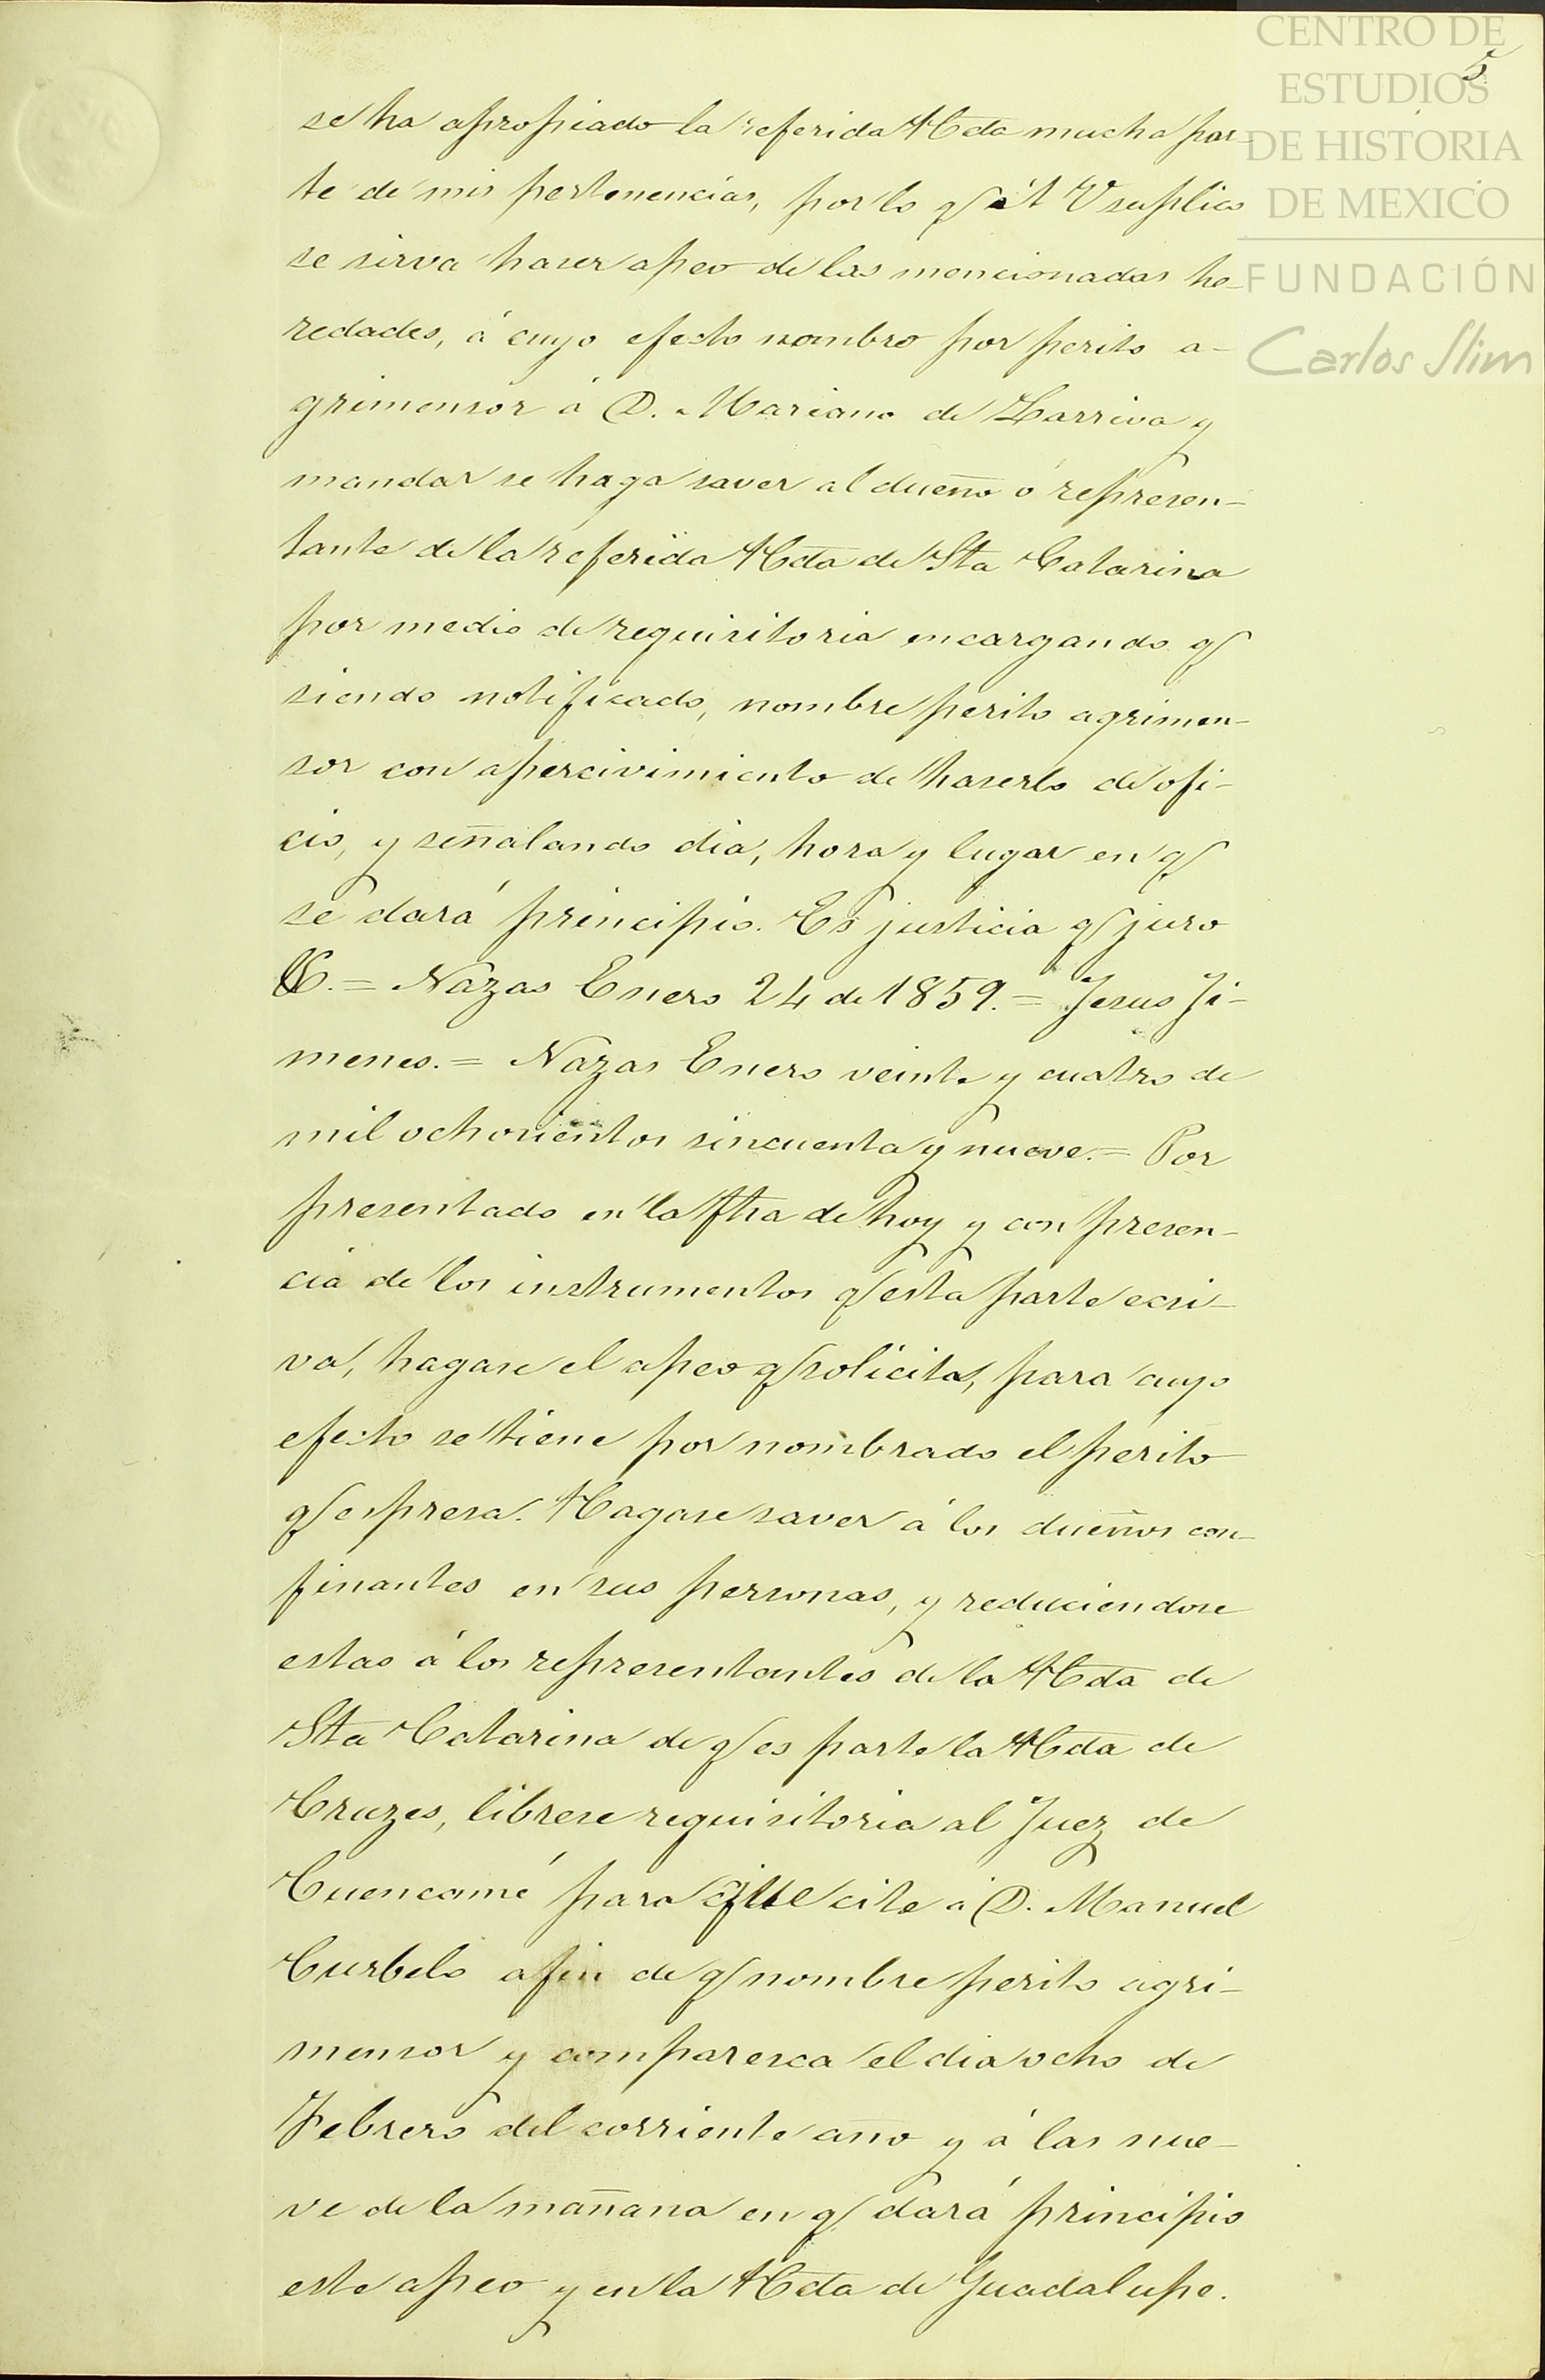 CENTRO DE
ESTUDIOS
DE HISTORIA
DE MEXICO
FUNDACIÓN
Carlos Slim
5
se ha apropiado la referida Hda mucha par-
te de mis pertenencias, por lo q á V suplico
se sirva haser apeo de las mencionadas he-
redades, á cuyo efecto nombro por perito a-
grimensor á D. Mariano de Larriva y
mandar se haga saver al dueño ó represen-
tante de la referida Hda de Sta Catarina
por medio de requisitoria encargando q
siendo notificado, nombre perito agrimen-
sor con apercivimiento de haserlo de ofi-
cio, y señalando dia, hora y lugar en q
se dará principio. Es justicia q juro
&. = Nazas Enero 24 de 1859. = Jesus Ji-
menes. = Nazas Enero veinte y cuatro de
mil ochosientos sincuenta y nueve. = Por
presentado en la fha de hoy y con presen-
cia de los instrumentos q esta parte ecsi-
va, hagase el apeo q solicita, para cuyo
efecto se tiene por nombrado el perito
q espresa. Hagase saver á los dueños con-
finantes en sus personas, y reduciendose
estas á los representantes de la Hda de
Sta Catarina de q es parte la Hda de
Cruzes, librese requisitoria al Juez de
Cuencamé para que cite á D. Manuel
Curbelo a fin de q nombre perito agri-
mensor y comparesca el dia ocho de
Febrero del corriente año y á las nue-
ve de la mañana en q dará principio
este apeo y en la Hda de Guadalupe.